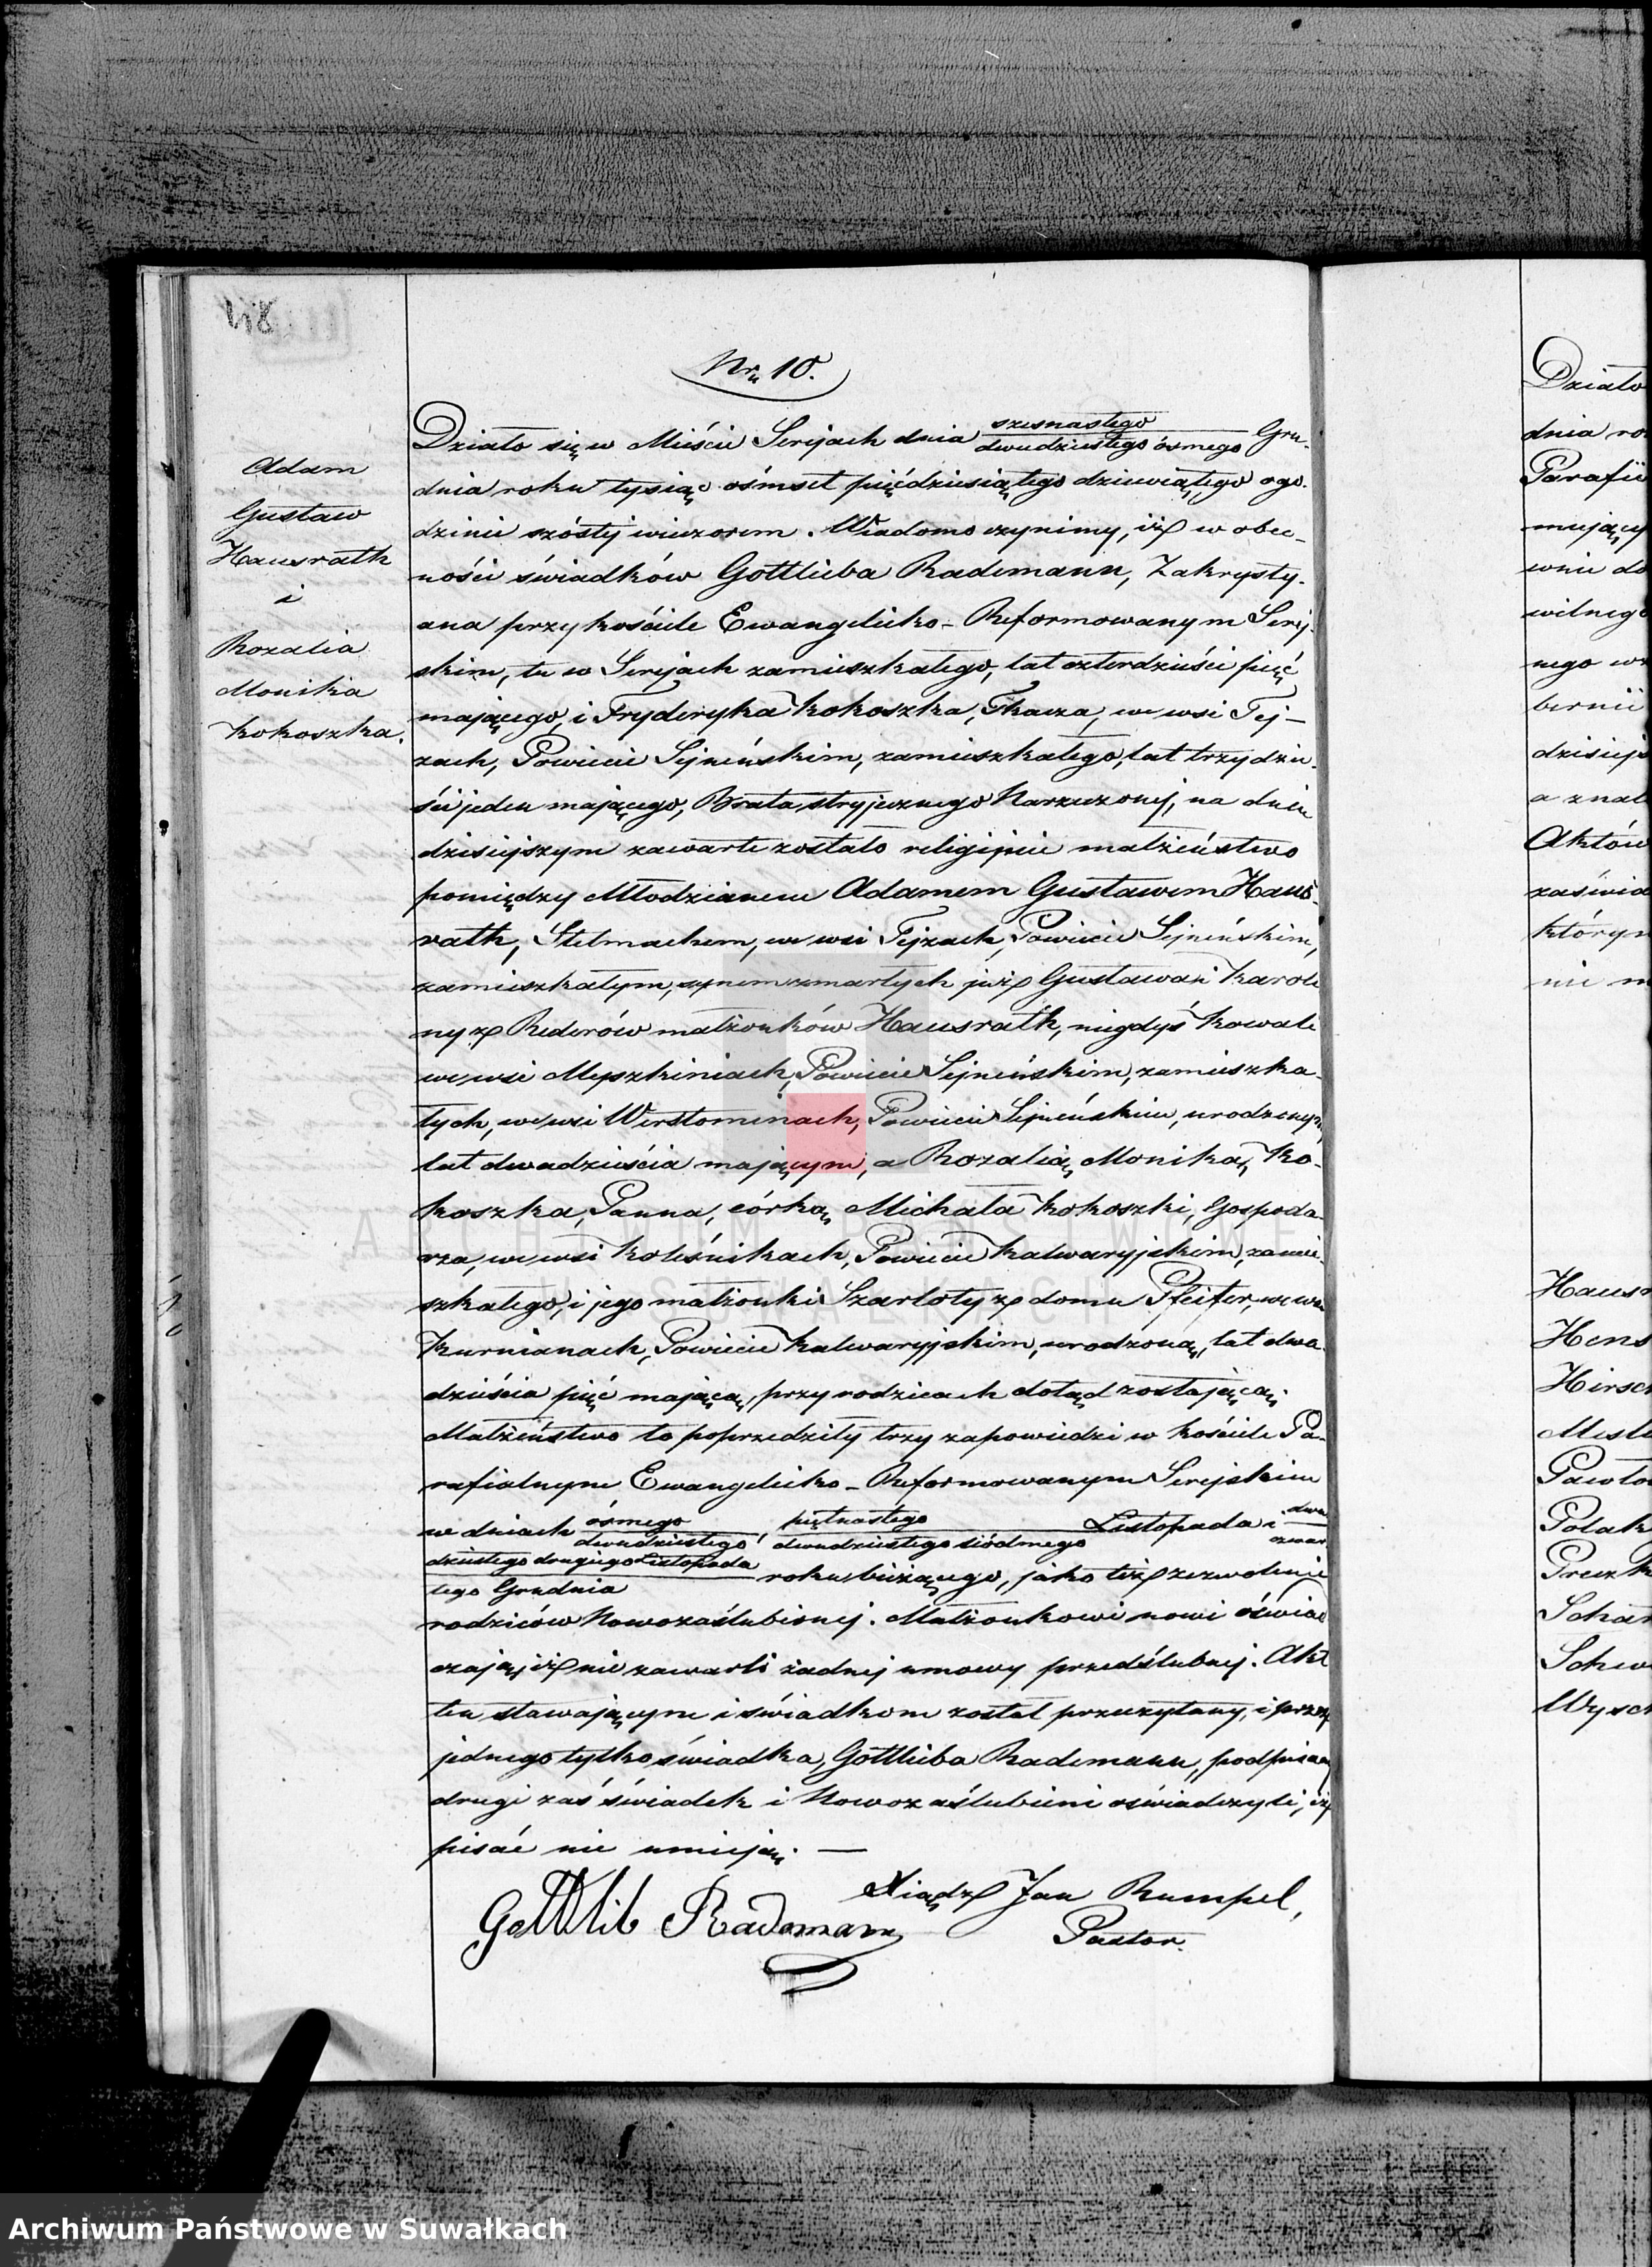 Nr. 10.
Adam
Gustaw
Hausrath
i
Rozalia
Monika
Kokoszka.
Działo się w Mieście Serejach dnia szesnastego / dwudziestego ósmego Gru-
dnia roku tysiąc ośmset pięćdziesiątego dziewiątego o go-
dzinie szóstej wieczorem. Wiadomo czynimy, iż w obec-
ności świadków Gottlieba Rademann, Zakrysty-
ana przy kościele Ewangelicko-Reformowanym Serej-
skim, tu w Serejach zamieszkałego, lat czterdzieści pięć
mającego, i Fryderyka Kokoszka, Tkacza, we wsi Tej-
zach, Powiecie Sejneńskim, zamieszkałego, lat trzydzie-
ści jeden mającego, Brata stryjecznego Narzeczonej, na dniu
dzisiejszym zawarte zostało religijnie małżeństwo
pomiędzy Młodzianem Adamem Gustawem Haus-
rath, Stelmachem, we wsi Tejzach, Powiecie Sejneńskim,
zamieszkałym, synem zmarłych już Gustawa i Karoli
ny z Rederów małżonków Hausrath, niegdyś Kowali
we wsi Myszkiniach, Powiecie Sejneńskim, zamieszka-
łych, we wsi Werstominach, Powiecie Sejneńskim, urodzonym,
lat dwadzieścia mającym, a Rozalią Moniką Ko-
koszka, Panną, córką Michała Kokoszki, Gospoda-
rza, we wsi Koleśnikach, Powiecie Kalwaryjskim, zamie-
szkałego, i jego małżonki Szarloty z domu Pfeifer, we wsi
Kurnianach, Powiecie Kalwaryjskim, urodzoną, lat dwa-
dzieścia pięć mającą, przy rodzicach dotąd zostającą.
Małżeństwo to poprzedziły trzy zapowiedzi w kościele Pa-
rafialnym Ewangelicko-Reformowanym Serejskim
we dniach ósmego / dwudziestego, piętnastego / dwudziestego siódmego Listopada i dwu / czwar
dziestego drugiego Listopada / tego Grudnia roku bieżącego, jako też zezwolenie
rodziców Nowozaślubionej. Małżonkowie nowi oświad
czają, iż nie zawarli żadnej umowy przedślubnej. Akt
ten stawającym i świadkom został przeczytany, i przez
jednego tylko świadka, Gottlieba Rademann, podpisany
drugi zaś świadek i Nowozaślubieni oświadczyli, iż
pisać nie umieją. —
Xiądz Jan Rumpel,
Pastor.
Gottlib Rademann
Działo
dnia ro
Parafii
mający
ewnie do
wilnego
nego w
bernii
dzisiejs
a znal
Aktów
zaświa
którym
nie m
Haus
Hens
Hirsc
Mesl
Pawło
Polak
Preizk
Schar
Schw
Wysch
ARCHIWUM PAŃSTWOWE
W SUWAŁKACH
Archiwum Państwowe w Suwałkach